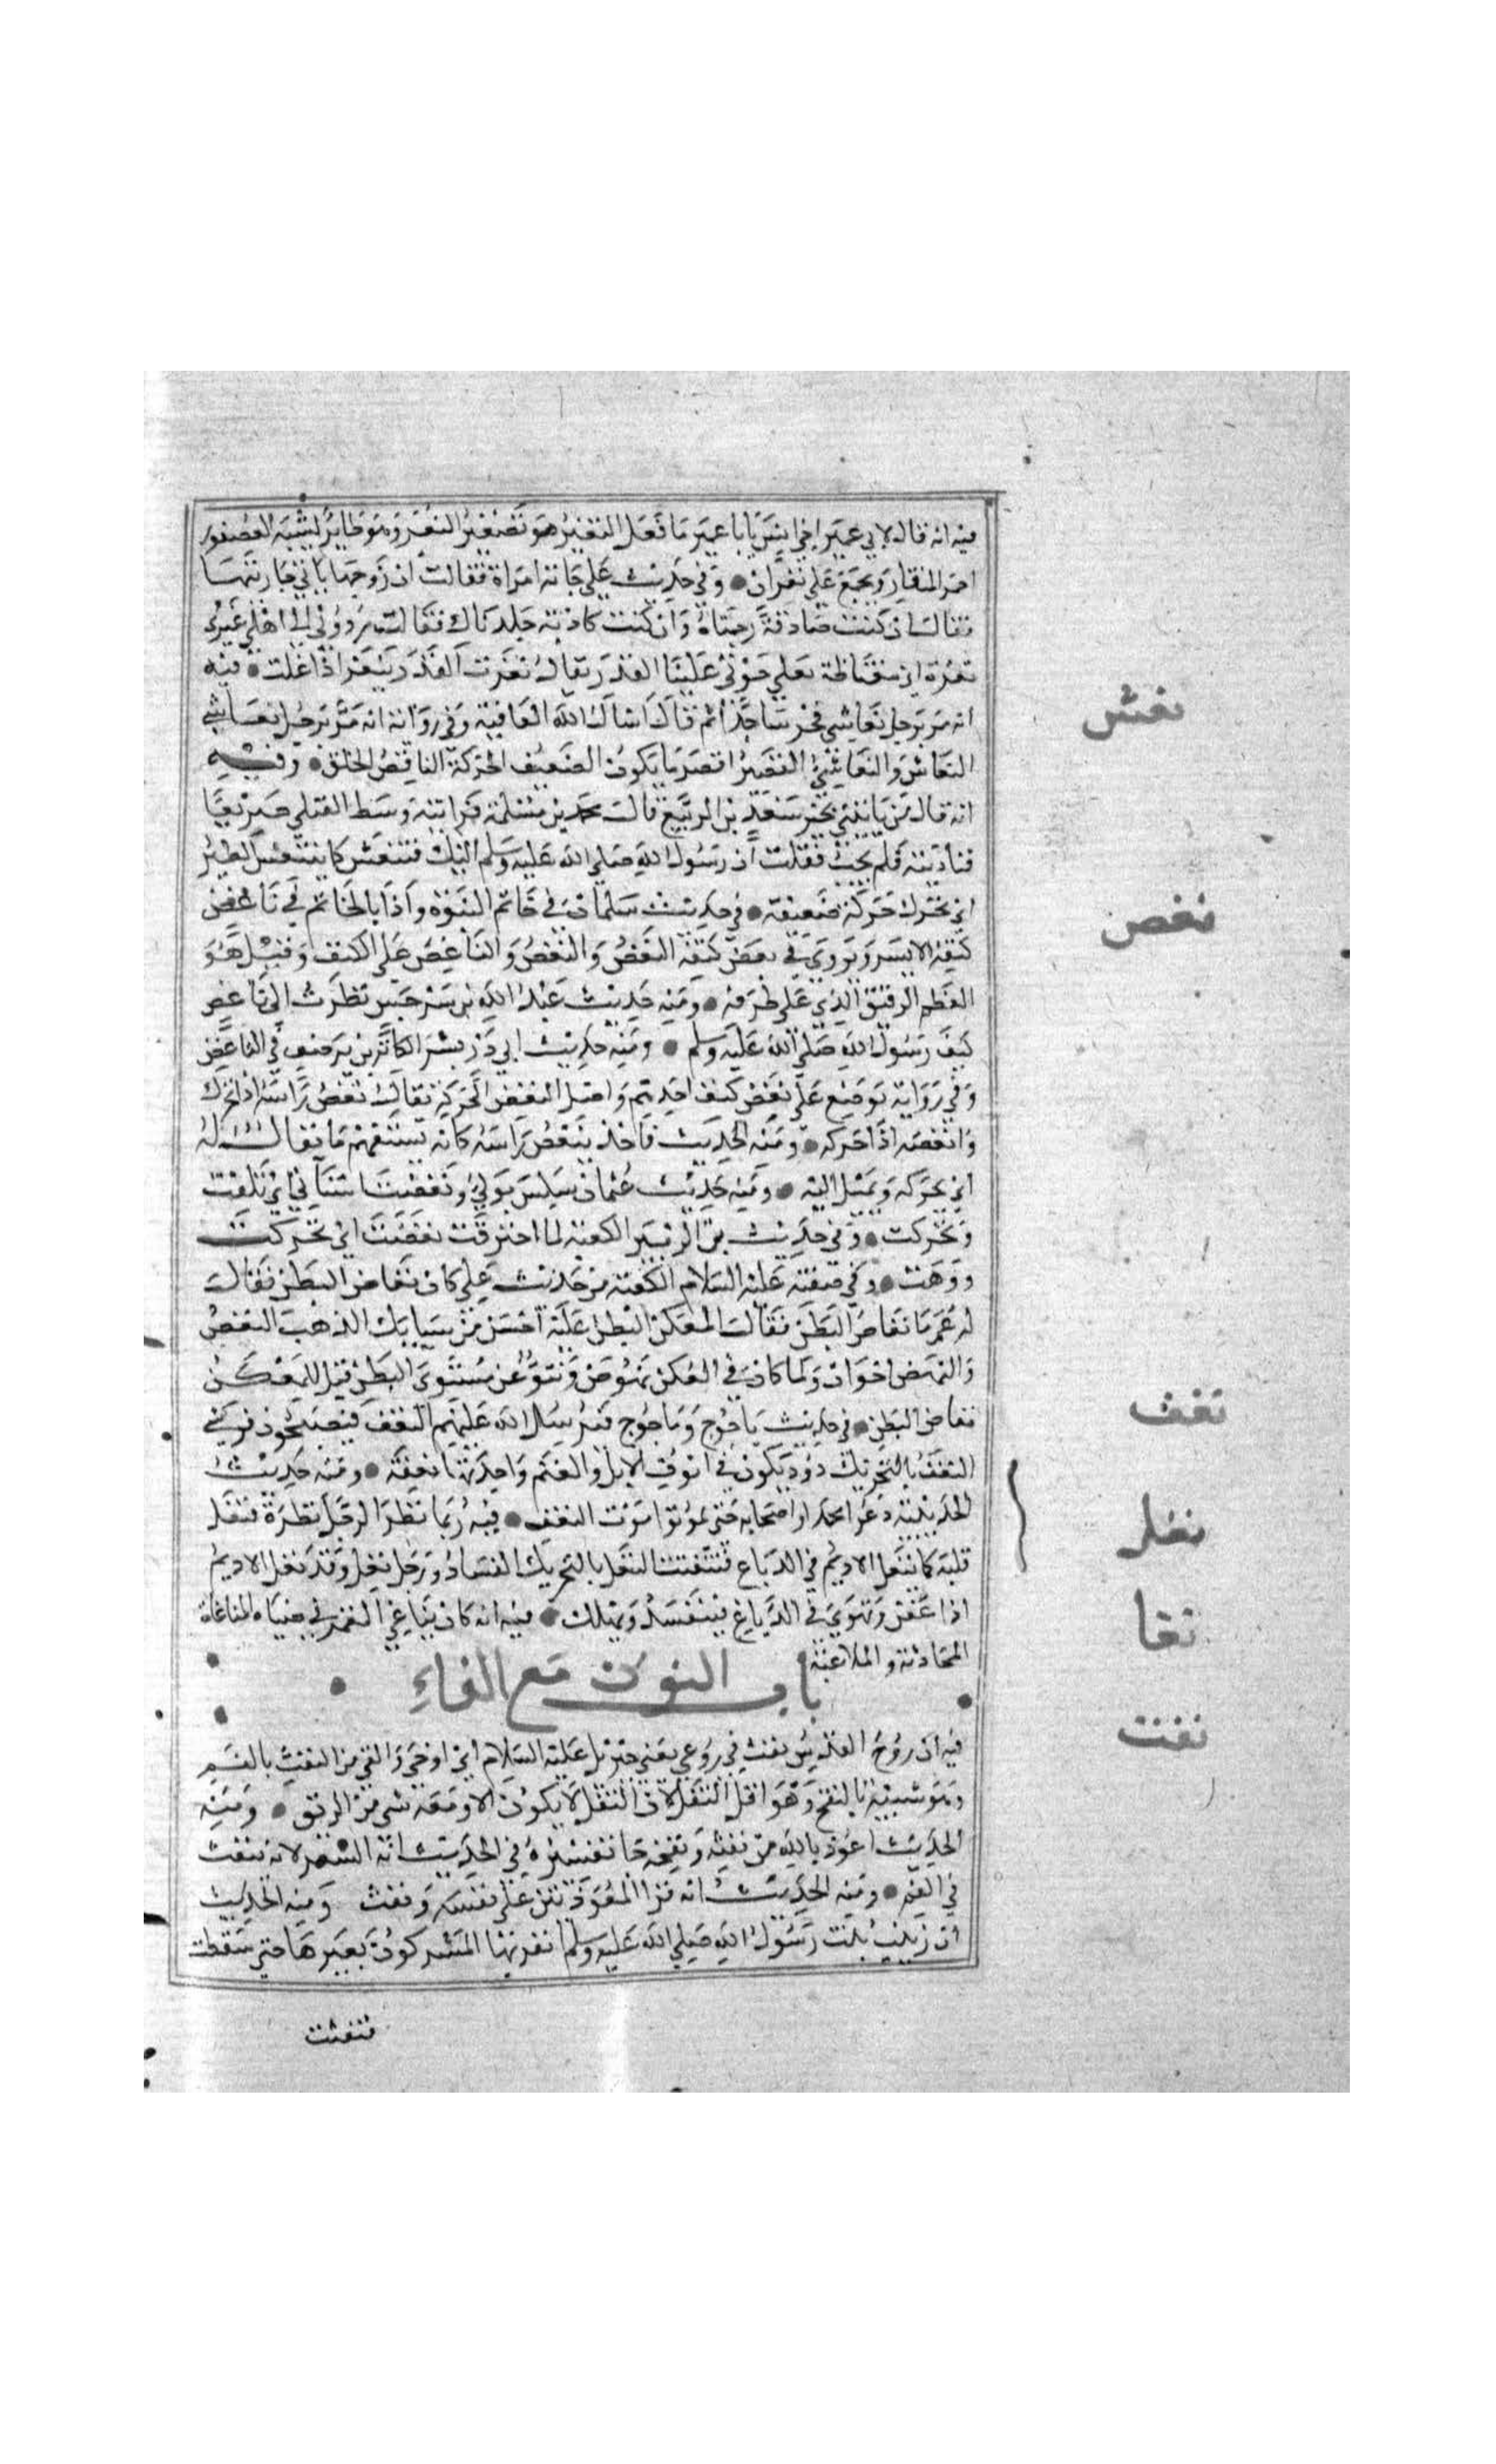 فيه انه قال لابي عمير اخي انس يا ابا عمير ما فعل النغير هو تصغير النغر وهو طاير يشبه العصفور
احمر المنقار ويجمع علي نغران • وفي حديث علي جاته امراة فقالت ان زوجها ياتي جاريتها
فقال ان كنت صادقة رجمناه وان كنت كاذبة جلدناك فقالت ردوني الي اهلي غيري
نغرة اي مغتاظة يغلي جوفي علينا القدر يقال نغرت القدر تنغر اذا غلت • فيه
نغش
انه مر برجل نغاشي فخر ساجدا ثم قال اسال الله العافية وفي رواية انه مر برجل نغاشي
النغاش والنغاشي القصير اقصر ما يكون الضعيف الحركة الناقص الخلق • وفيه
انه قال من ياتيني بخبر سعد بن الربيع قال محمد بن مسلمة فرايته وسط القتلي صريعا
فناديته فلم يجب فقلت ان رسول الله صلي الله عليه وسلم اليك فتنغش كما يتنغش الطير
نغص
اي تحرك حركة ضعيفة • في حديث سلمان في خاتم النبوة واذا بالخاتم في ناغض
كتفه الايسر ويروي في نغض كتفه النغض والنغض والناغض علي الكتف وقيل هو
العظم الرقيق الذي علي طرفه • ومنه حديث عبد الله بن سرجس نظرت الي ناغض
كتف رسول الله صلي الله عليه وسلم • ومنه حديث ابي ذر بشر الكانزين برضف في الناغض
وفي رواية يوضع علي نغض كتف احدهم واصل النغض الحركة يقال نغض راسه اذا تحرك
وانغضه اذا حركه • ومنه الحديث فاخذ ينغض راسه كانه يستفهم ما يقال له
اي يحركه ويميل اليه • ومنه حديث عثمان سلس بولي ونغضت اسناني اي قلقت
وتحركت • وفي حديث بن الزبير الكعبة لما احترقت نغضت اي تحركت
ووهت • وفي صفته عليه السلام من حديث علي كان نغاض البطن فقال
له عمر ما نغاض البطن فقال المعكن البطن عكنه احسن من سبايك الذهب النغض
والنهض اخوان ولما كان في العكن نهوض ونتو عن مستوي البطن قيل للمعكن
نغف
نغاض البطن • في حديث ياجوج وماجوج فيرسل الله عليهم النغف فيصبحون فرسي
النغف بالتحريك دود يكون في انوف الابل والغنم واحدتها نغفة • ومنه حديث
نغل
الحديبية دعوا محمدا واصحابه حتي يموتوا موت النغف • فيه ربما نظر الرجل نظرة فنغل
قلبه كما ينغل الاديم في الدباغ فيتفتت النغل بالتحريك الفساد ورجل نغل وقد نغل الاديم
نغا
اذا عفن وتهري في الدباغ فيفسد ويهلك • فيه انه كان يناغي القمر في صباه المناغاة
المحادثة والملاعبة
باب النون مع الفاء
نفث
فيه ان روح القدس نفث في روعي يعني جبريل عليه السلام اي اوحي والقي من النفث بالفم
وهو شبيه بالنفخ وهو اقل من التفل لان التفل لا يكون الا ومعه شي من الريق • ومنه
الحديث اعوذ بالله من نفثه ونفخه جا تفسيره في الحديث انه الشعر لانه ينفث
في الفم • ومنه الحديث انه قرا المعوذتين علي نفسه ونفث ومنه الحديث
ان زينب بنت رسول الله صلي الله عليه وسلم انفر بها المشركون بعيرها حتي سقطت
فنفثت